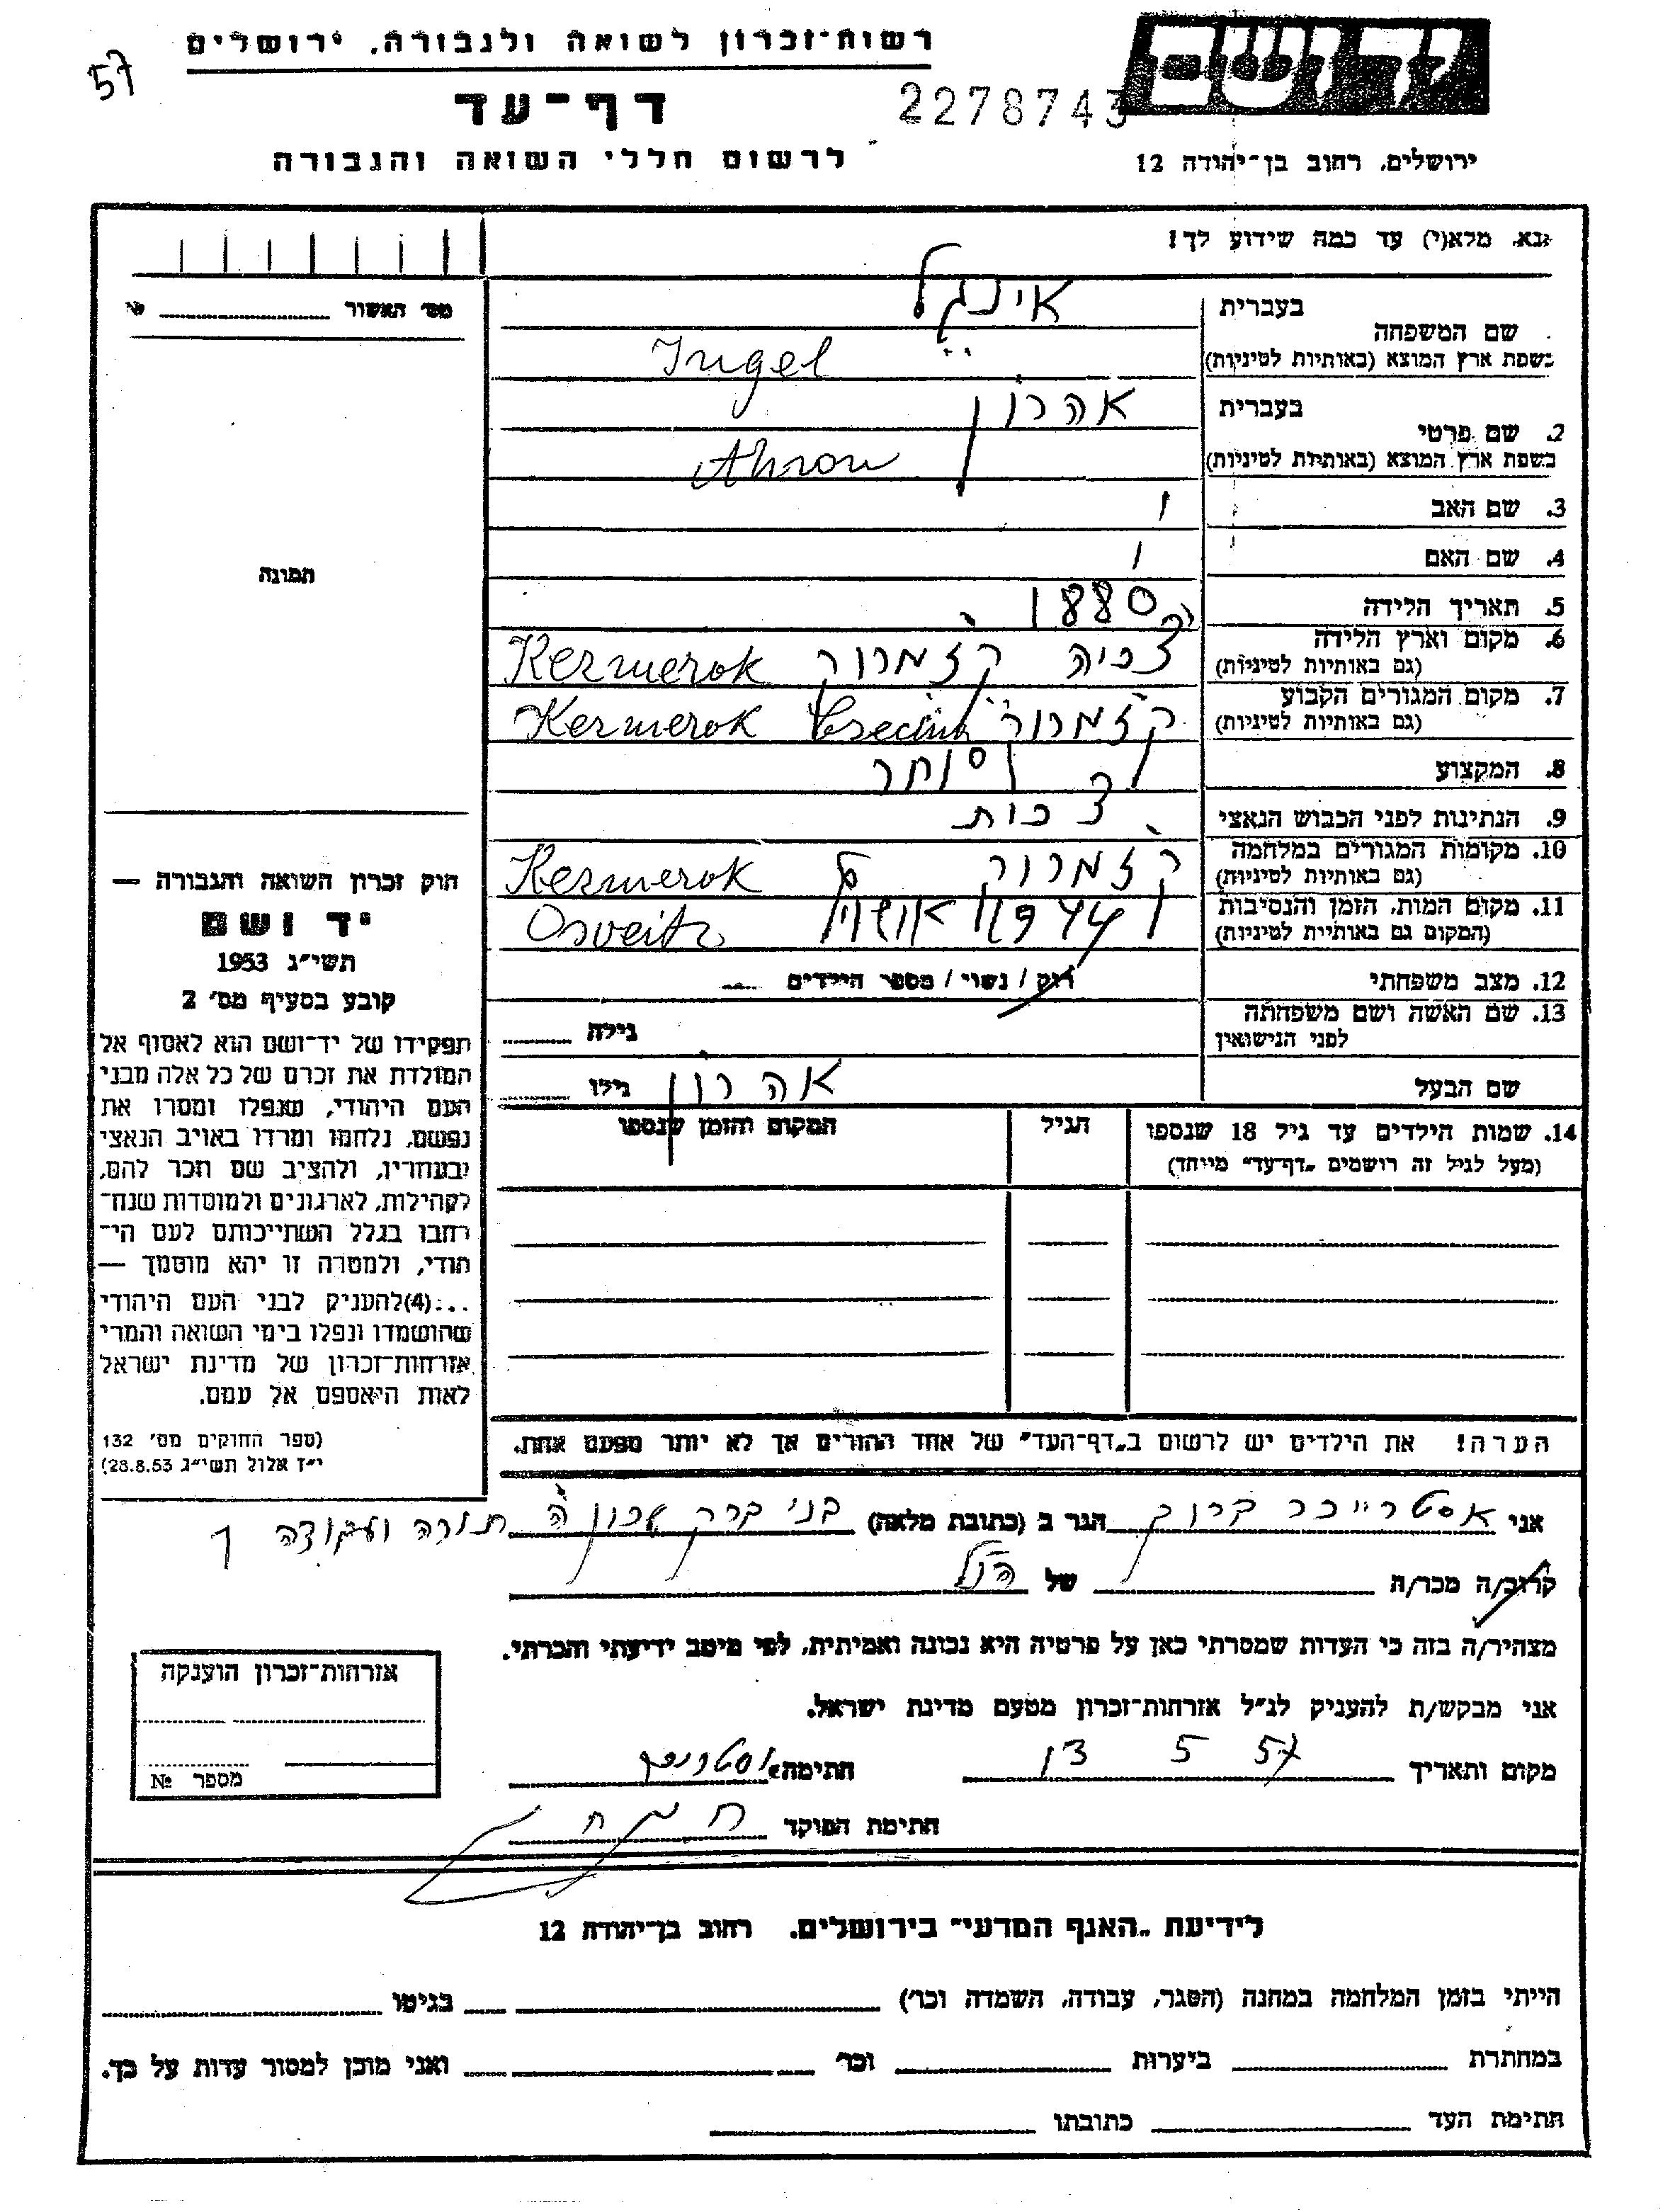 57
רשות־זכרון לשואה ולגבורה, ירושלים
דף־עד
לרשום חללי השואה והגבורה
2278743
יד ושם
ירושלים, רחוב בן־יהודה 12
נא מלא(י) עד כמה שידוע לך!
מס׳ האשור №
בעברית אינגל
שם המשפחה
בשפת ארץ המוצא (באותיות לטיניות) Ingel
בעברית אהרון
2. שם פרטי
בשפת ארץ המוצא (באותיות לטיניות) Ahron
3. שם האב
4. שם האם
5. תאריך הלידה 1880
6. מקום וארץ הלידה קזמרוק Kezmerok
(גם באותיות לטיניות)
7. מקום המגורים הקבוע קזמרוק Kezmerok
(גם באותיות לטיניות)
8. המקצוע סוחר
9. הנתינות לפני הכבוש הנאצי
10. מקומות המגורים במלחמה קזמרוק Kezmerok
(גם באותיות לטיניות)
11. מקום המות, הזמן והנסיבות 1944 Osveitz
(המקום גם באותיות לטיניות)
12. מצב משפחתי רוק / נשוי / מספר הילדים
13. שם האשה ושם משפחתה
לפני הנישואין גילה
שם הבעל אהרון גילו
14. שמות הילדים עד גיל 18 שנספו הגיל המקום והזמן שנספו
(מעל לגיל זה רושמים „דף־עד" מיוחד)
הערה! את הילדים יש לרשום ב„דף־העד" של אחד ההורים אך לא יותר מפעם אחת.
תמונה
חוק זכרון השואה והגבורה —
יד ושם
תשי״ג 1953
קובע בסעיף מס׳ 2
תפקידו של יד־ושם הוא לאסוף אל
המולדת את זכרם של כל אלה מבני
העם היהודי, שנפלו ומסרו את
נפשם, נלחמו ומרדו באויב הנאצי
ובעוזריו, ולהציב שם וזכר להם,
לקהילות, לארגונים ולמוסדות שנח־
רבו בגלל השתייכותם לעם הי־
הודי, ולמטרה זו יהא מוסמך —
...(4) להעניק לבני העם היהודי
שהושמדו ונפלו בימי השואה והמרי
אזרחות־זכרון של מדינת ישראל
לאות היאספם אל עמם.
(ספר החוקים מס׳ 132
י״ז אלול תשי״ג 28.8.53)
אני אסטרייכר ברוך הגר ב (כתובת מלאה) בני ברק שכון ה תורה ועבודה
קרוב/ה מכר/ה של הנ״ל
מצהיר/ה בזה כי העדות שמסרתי כאן על פרטיה היא נכונה ואמיתית, לפי מיטב ידיעתי והכרתי.
אני מבקש/ת להעניק לנ״ל אזרחות־זכרון מטעם מדינת ישראל.
מקום ותאריך 57 5 חתימה
חתימת הפוקד
אזרחות־זכרון הוענקה
מספר №
לידיעת „האגף המדעי" בירושלים. רחוב בן־יהודה 12
הייתי בזמן המלחמה במחנה (הסגר, עבודה, השמדה וכו׳) בגיטו
במחתרת ביערות וכו׳ ואני מוכן למסור עדות על כך.
חתימת העד כתובתו